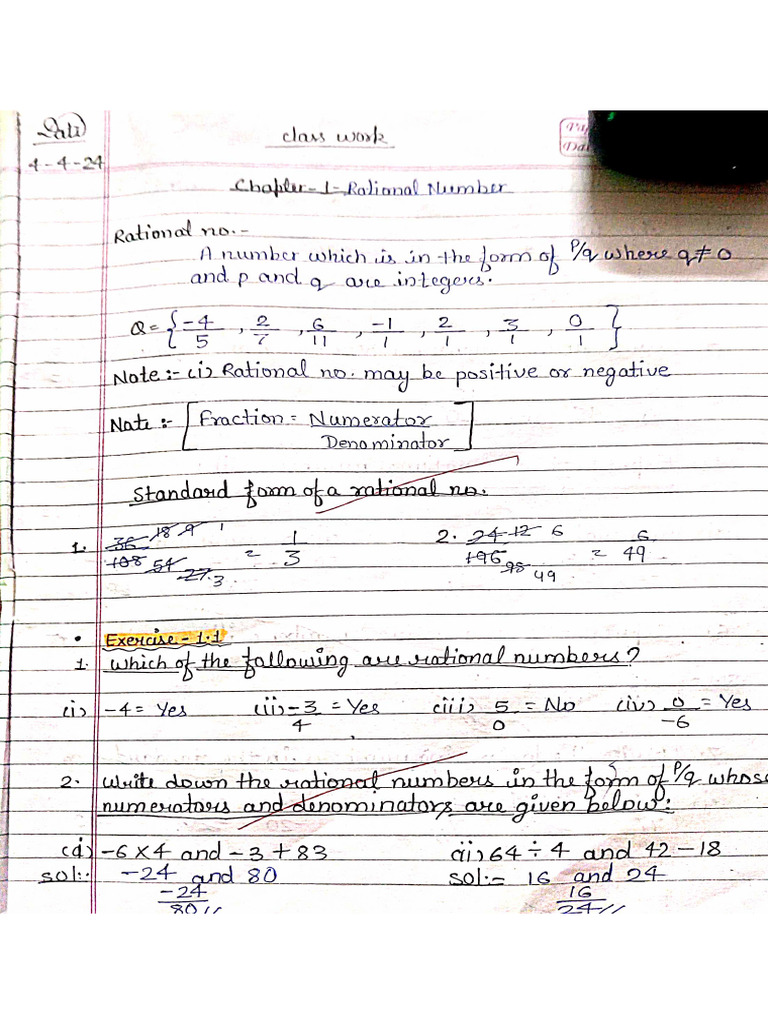 Date
4-4-24
class work
Chapter-1-Rational Number
Rational no.-
A number which is in the form of P/q where q ≠ 0
and p and q are integers.
Q = { -4/5 , 2/7 , 6/11 , -1/1 , 2/1 , 3/1 , 0/1 }
Note :- (i) Rational no. may be positive or negative
Note :- [ Fraction = Numerator
Denominator ]
Standard form of a rational no.
1. 36 18 9 1 / 108 54 27 3 = 1/3 2. 24 12 6 / 196 98 49 = 6/49
• Exercise - 1.1
1. Which of the following are rational numbers?
(i) -4 = Yes (ii) -3/4 = Yes (iii) 5/0 = No (iv) 0/-6 = Yes
2. Write down the rational numbers in the form of P/q whose
numerators and denominators are given below:
(i) -6 × 4 and -3 + 83 (ii) 64 ÷ 4 and 42 - 18
sol:- -24 and 80 sol:- 16 and 24
-24/80// 16/24//